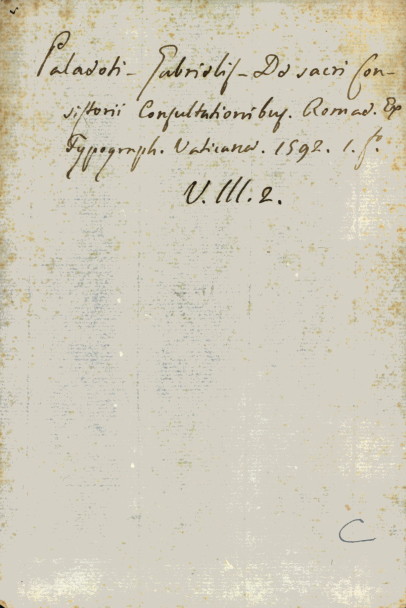 Paladoti - Gabrielis - De sacri Con-
sistorii Consultationibus. Romae. Ex
Typograph. Vaticana. 1592. 1. f.
V. III. 2.
C